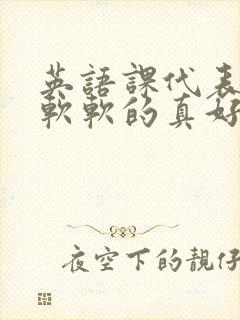 英語課代表
軟軟的真好
夜空下的靚仔